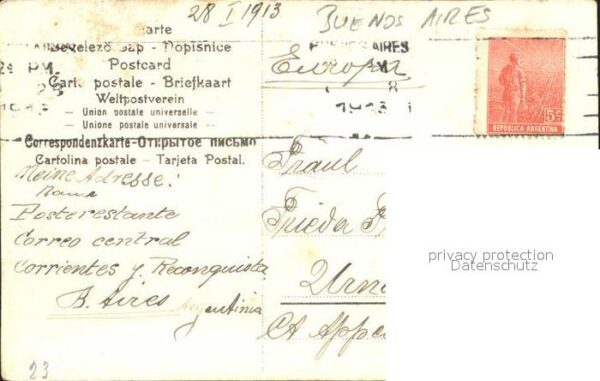 28 I 1913 BUENOS AIRES
Karte
Levelező Lap - Dopisnice
Postcard
Carte postale - Briefkaart
Weltpostverein
Union postale universelle
Unione postale universale
Correspondenzkarte - Открытое письмо
Cartolina postale - Tarjeta Postal.
Europa
AIRES
PM
28
1913
5c
REPUBLICA ARGENTINA
Meine Adresse:
Posterestante
Correo central
Corrientes y Reconquista
B. Aires
Argentinia
Fräul
Frieda
Urn
Ct Appe
privacy protection
Datenschutz
23